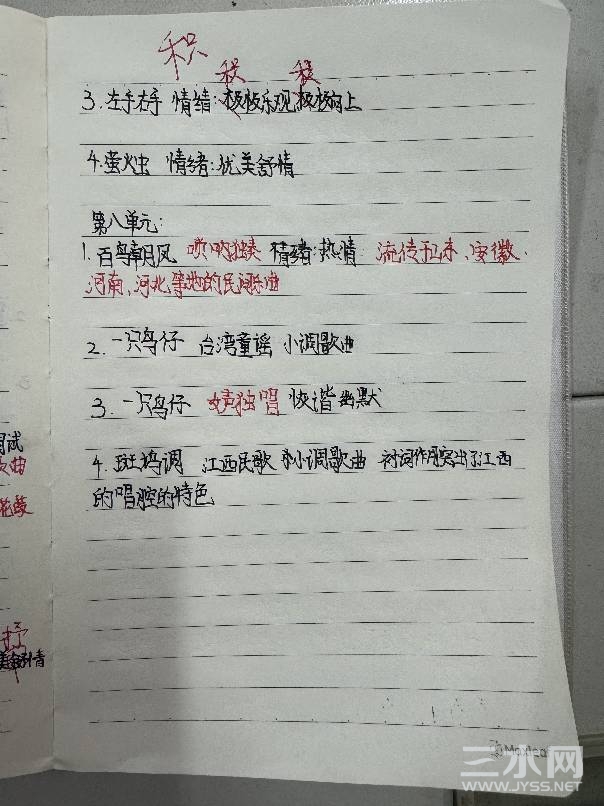 积
积 积
3.左手右手 情绪:极极乐观 极极向上
4.萤火虫 情绪:优美舒情
第八单元:
1.百鸟朝凤 唢呐独奏 情绪:热情 流传 山东、安徽、
河南、河北等地的民间乐曲
2.一只鸟仔 台湾童谣 小调歌曲
3.一只鸟仔 女声独唱 诙谐幽默
4.斑鸠调 江西民歌 小调歌曲 衬词作用突出了江西
的唱腔的特色
试
曲
花鼓
抒
Maxleaf
三水网
WWW.JYSS.NET